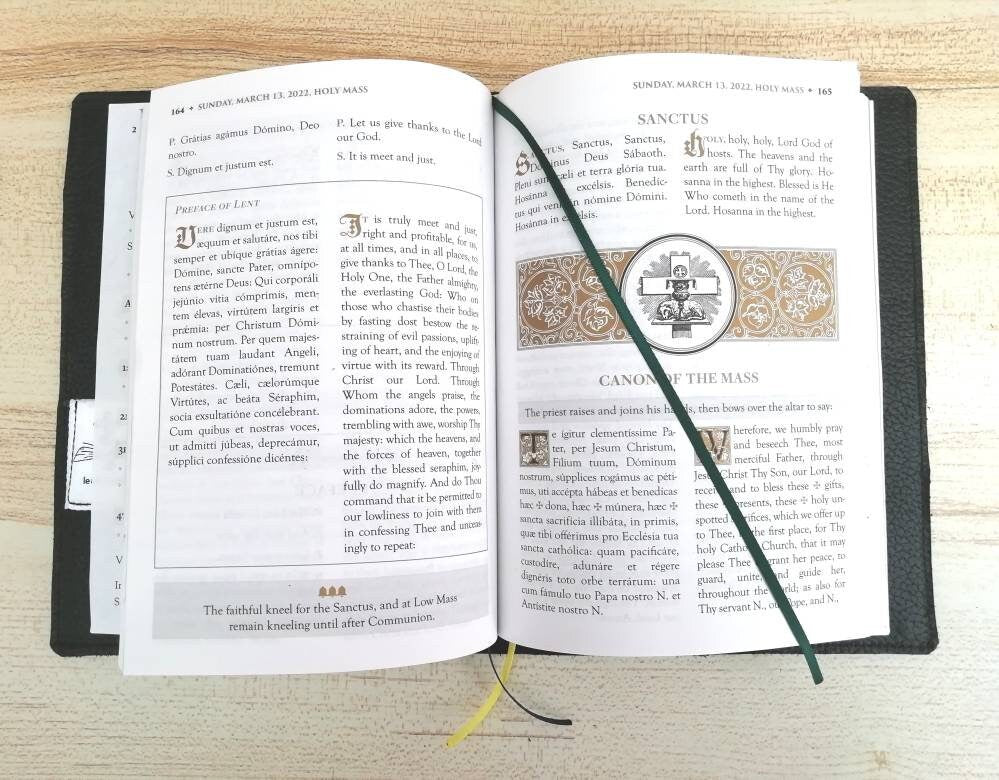 164 + SUNDAY, MARCH 13, 2022, HOLY MASS
P. Grátias agámus Dómino, Deo
nostro.
S. Dignum et justum est.
P. Let us give thanks to the Lord
our God.
S. It is meet and just.
PREFACE OF LENT
VERE dignum et justum est,
æquum et salutáre, nos tibi
semper et ubíque grátias ágere:
Dómine, sancte Pater, omnípo-
tens ætérne Deus: Qui corporáli
jejúnio vítia cómprimis, men-
tem élevas, virtútem largíris et
prǽmia: per Christum Dómi-
num nostrum. Per quem majes-
tátem tuam laudant Angeli,
adórant Dominatiónes, tremunt
Potestátes. Cæli, cælorúmque
Virtútes, ac beáta Séraphim,
socia exsultatióne concélebrant.
Cum quibus et nostras voces,
ut admitti júbeas, deprecámur,
súpplici confessióne dicéntes:
IT is truly meet and just,
right and profitable, for us,
at all times, and in all places, to
give thanks to Thee, O Lord, the
Holy One, the Father almighty,
the everlasting God: Who on
those who chastise their bodies
by fasting dost bestow the re-
straining of evil passions, uplift-
ing of heart, and the enjoying of
virtue with its reward. Through
Christ our Lord. Through
Whom the angels praise, the
dominations adore, the powers,
trembling with awe, worship Thy
majesty: which the heavens, and
the forces of heaven, together
with the blessed seraphim, joy-
fully do magnify. And do Thou
command that it be permitted to
our lowliness to join with them
in confessing Thee and unceas-
ingly to repeat:
The faithful kneel for the Sanctus, and at Low Mass
remain kneeling until after Communion.
SUNDAY, MARCH 13, 2022, HOLY MASS + 165
SANCTUS
SANCTUS, Sanctus, Sanctus,
Dominus Deus Sábaoth.
Pleni sunt cæli et terra glória tua.
Hosánna in excélsis. Benedíc-
tus qui venit in nómine Dómini.
Hosánna in excélsis.
HOLY, holy, holy, Lord God of
hosts. The heavens and the
earth are full of Thy glory. Ho-
sanna in the highest. Blessed is He
Who cometh in the name of the
Lord. Hosanna in the highest.
CANON OF THE MASS
The priest raises and joins his hands, then bows over the altar to say:
Te ígitur clementíssime Pa-
ter, per Jesum Christum,
Fílium tuum, Dóminum
nostrum, súpplices rogámus ac péti-
mus, uti accépta hábeas et benedícas
hæc ✠ dona, hæc ✠ múnera, hæc ✠
sancta sacrifícia illibáta, in primis,
quæ tibi offérimus pro Ecclésia tua
sancta cathólica: quam pacificáre,
custodíre, adunáre et régere
dignéris toto orbe terrárum: una
cum fámulo tuo Papa nostro N. et
Antístite nostro N.
Wherefore, we humbly pray
and beseech Thee, most
merciful Father, through
Jesus Christ Thy Son, our Lord, to
receive and to bless these ✠ gifts,
these ✠ presents, these ✠ holy un-
spotted sacrifices, which we offer up
to Thee, in the first place, for Thy
holy Catholic Church, that it may
please Thee to grant her peace, to
guard, unite, and guide her,
throughout the world; as also for
Thy servant N., our Pope, and N.,